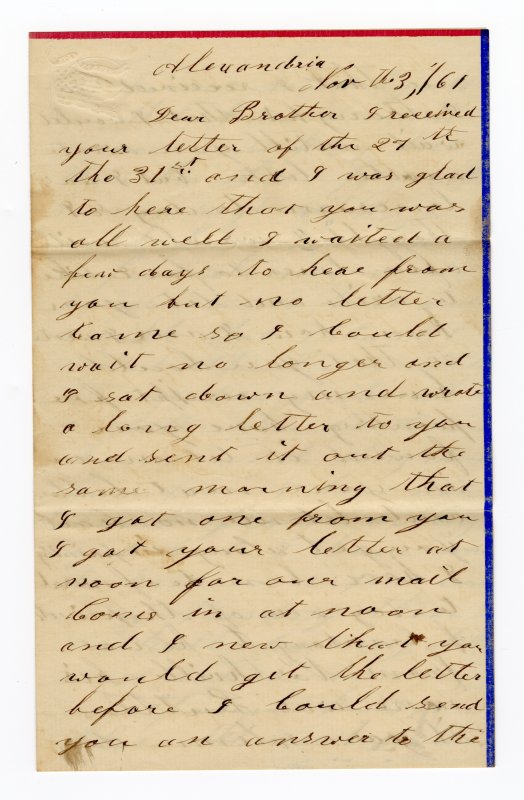 Alexandria
Nov th 3, /61
Dear Brother I received
your letter of the 27 th
tho 31st and I was glad
to here that you was
all well I waited a
few days to hear from
you but no letter
Came so I Could
wait no longer and
I sat down and wrote
a long letter to you
and sent it out the
same morning that
I got one from you
I got your letter at
noon for our mail
Come in at noon
and I new that you
would get the letter
before I Could send
you an answer to the